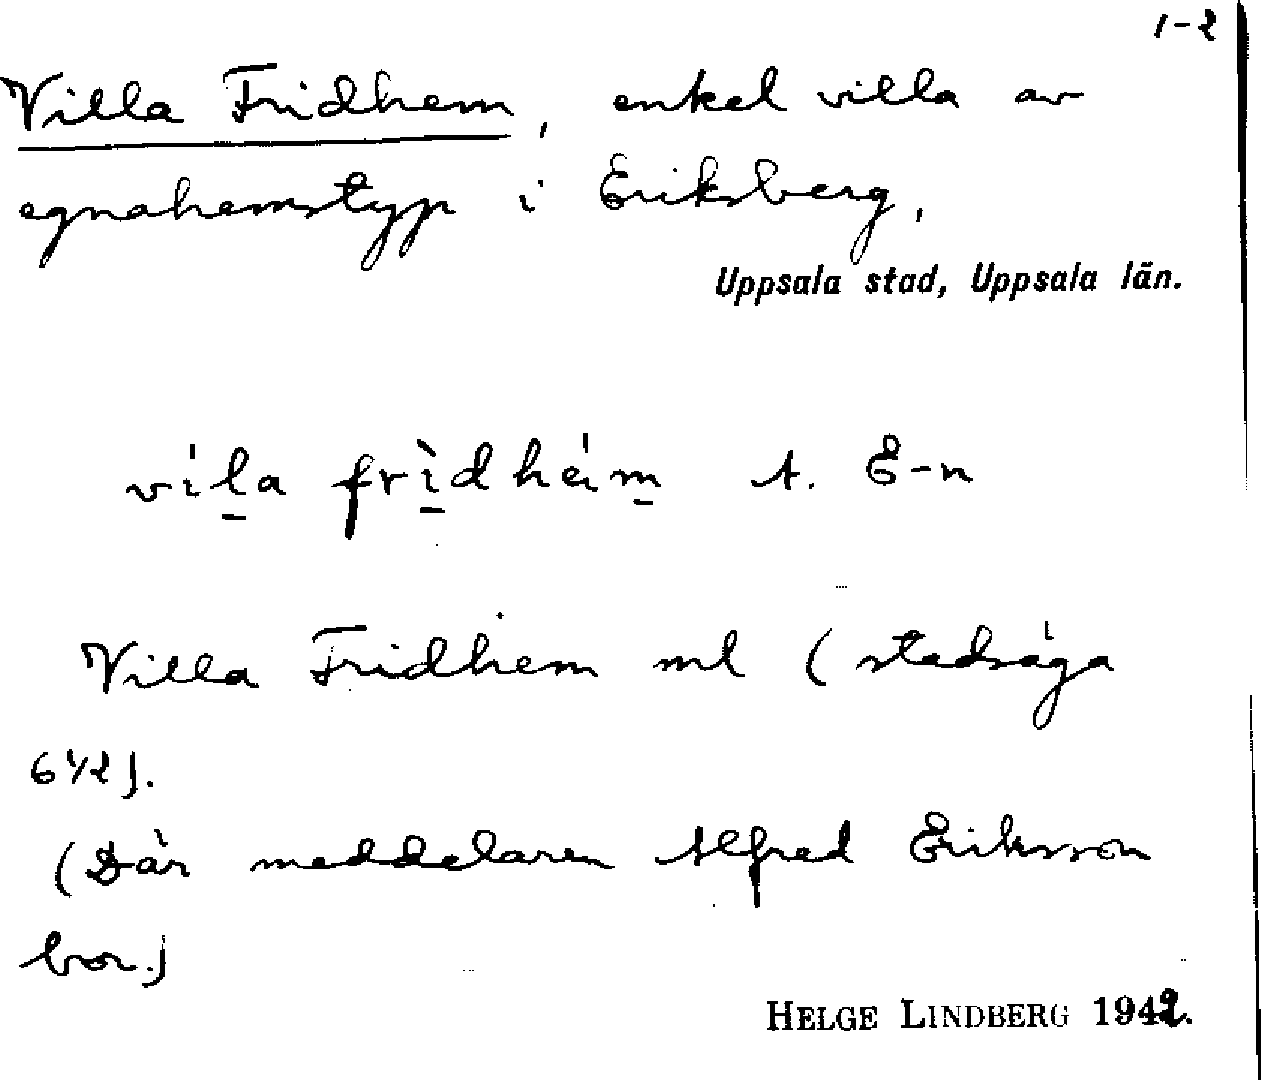 1-2
Villa Fridhem, enkel villa av
egnahemstyp i Eriksberg,
Uppsala stad, Uppsala län.
víla frìdhéim A. E-n
Villa Fridhem ml (stadsäga
61/2).
(Där meddelaren Alfred Eriksson
bor.)
HELGE LINDBERG 1942.